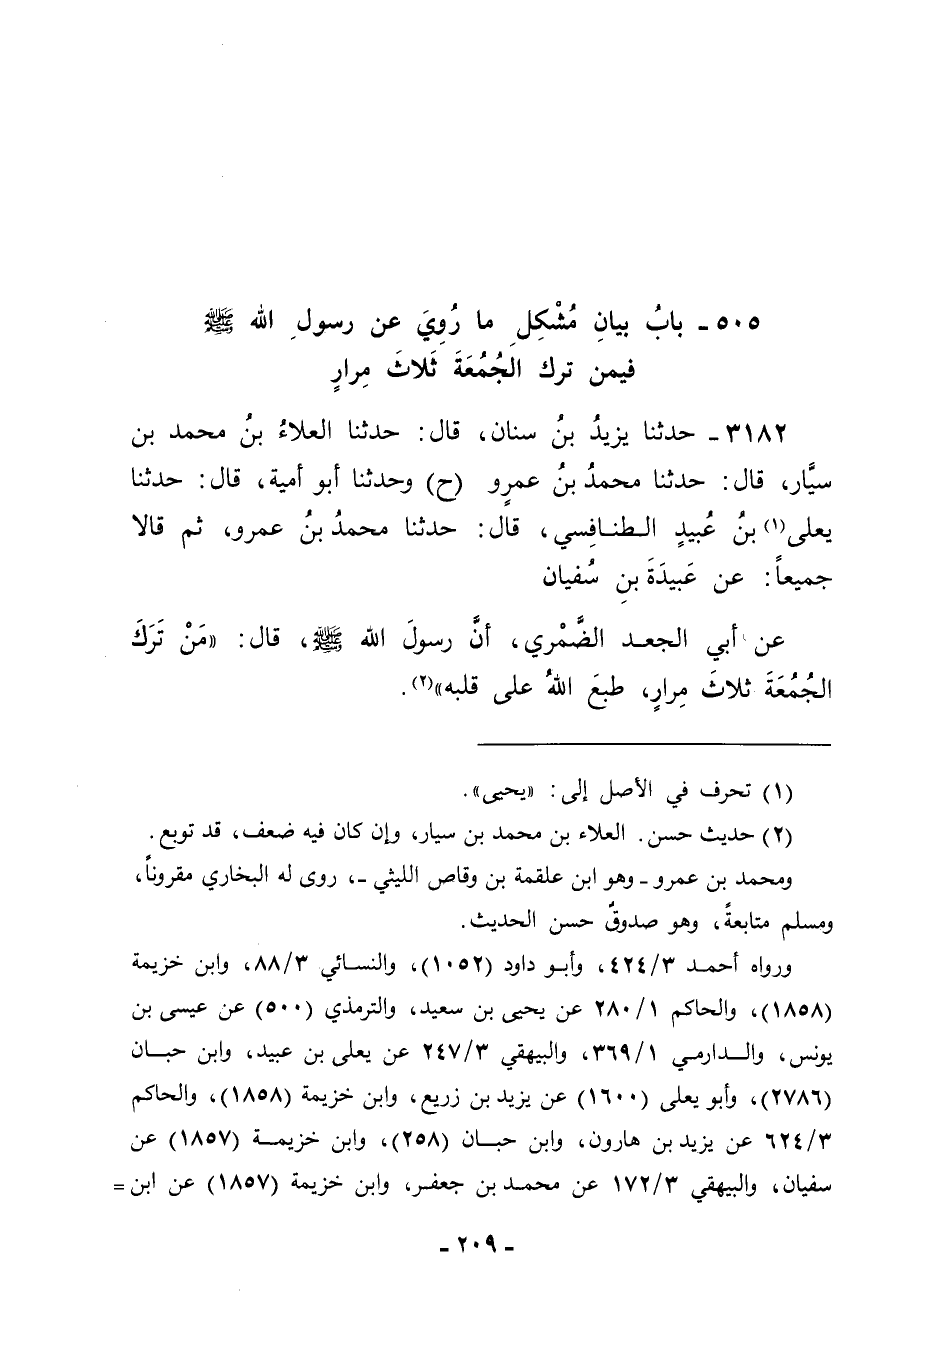 ٥٠٥ - بابُ بيانِ مُشْكِلِ ما رُوِيَ عن رسولِ الله ﷺ
فيمن ترك الجُمُعَةَ ثَلاثَ مِرارٍ
٣١٨٢ - حدثنا يزيدُ بنُ سنان، قال: حدثنا العلاءُ بنُ محمد بن
سيَّار، قال: حدثنا محمدُ بنُ عمرٍو (ح) وحدثنا أبو أمية، قال: حدثنا
يعلى(١) بنُ عُبيدٍ الطنافِسي، قال: حدثنا محمدُ بنُ عمرو، ثم قالا
جميعاً: عن عَبيدَةَ بنِ سُفيان
عن أبي الجعد الضَّمْري، أنَّ رسولَ الله ﷺ، قال: «مَنْ تَرَكَ
الجُمُعَةَ ثلاثَ مِرارٍ، طبعَ اللهُ على قلبه»(٢).
(١) تحرف في الأصل إلى: «يحيى».
(٢) حديث حسن. العلاء بن محمد بن سيار، وإن كان فيه ضعف، قد توبع.
ومحمد بن عمرو - وهو ابن علقمة بن وقاص الليثي -، روى له البخاري مقروناً،
ومسلم متابعةً، وهو صدوقٌ حسن الحديث.
ورواه أحمد ٤٢٤/٣، وأبو داود (١٠٥٢)، والنسائي ٨٨/٣، وابن خزيمة
(١٨٥٨)، والحاكم ٢٨٠/١ عن يحيى بن سعيد، والترمذي (٥٠٠) عن عيسى بن
يونس، والدارمي ٣٦٩/١، والبيهقي ٢٤٧/٣ عن يعلى بن عبيد، وابن حبان
(٢٧٨٦)، وأبو يعلى (١٦٠٠) عن يزيد بن زريع، وابن خزيمة (١٨٥٨)، والحاكم
٦٢٤/٣ عن يزيد بن هارون، وابن حبان (٢٥٨)، وابن خزيمة (١٨٥٧) عن
سفيان، والبيهقي ١٧٢/٣ عن محمد بن جعفر، وابن خزيمة (١٨٥٧) عن ابن =
- ٢٠٩ -